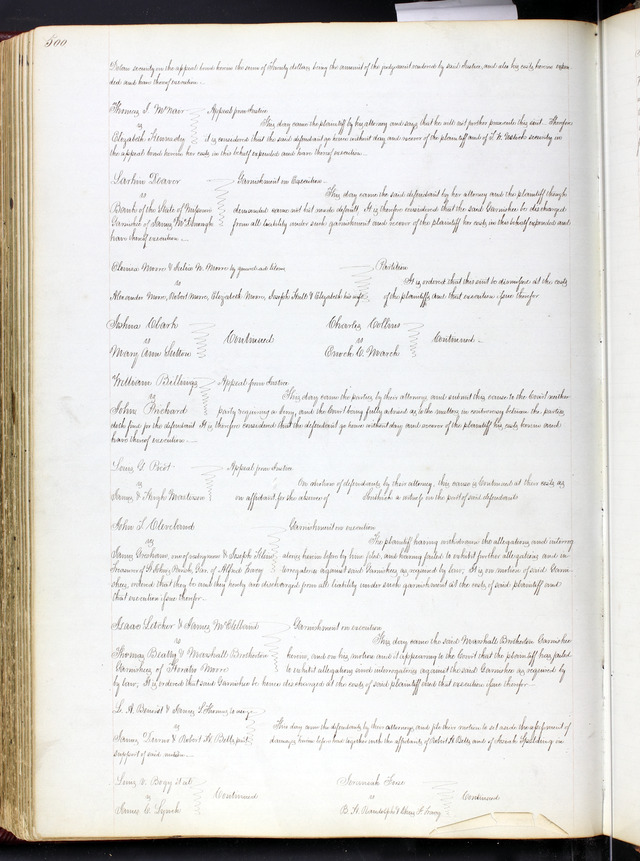 500
security in the appeal bond herein the sum of Twenty dollars being the amount of the judgment rendered by said Justice, and also his costs herein expen
ded and have thereof execution.
Thomas J. McNair
vs
Elizabeth Kennedy
Appeal from Justice
This day came the plaintiff by his attorney and says that he will not further prosecute this suit. Therefore
it is considered that the said defendant go hence without day and recover of the plaintiff and of security in
the appeal bond herein her costs in this behalf expended and have thereof execution.
Larkin Deaver
vs
Bank of the State of Missouri
Garnishee of James
Garnishment on Execution
This day came the said defendant by her attorney & the plaintiff though
demanded came not but made default. It is therefore considered that the said Garnishee be discharged
from all liability under such garnishment and recover of the plaintiff her costs in this behalf expended and
have thereof execution.
Clarissa Moore & Moore by guardian ad litem
vs
Alexander Moore, Robert Moore, Elizabeth Moore, Joseph Hull & Elizabeth his wife
Partition
It is ordered that this suit be dismissed at the costs
of the plaintiffs and that execution issue therefor
Joshua Clark
vs
Mary Ann Sutton
Continued
Charles Collins
vs
Enoch C. March
Continued
William Billings
vs
John Prichard
Appeal from Justice
This day came the parties by their attorneys and submit this cause to the Court neither
party requiring a Jury, and the Court being fully advised as to the matters in controversy between the parties,
doth find for the defendant. It is therefore considered that the defendant go hence without day and recover of the plaintiff his costs herein and
have thereof execution.
Louis G. Picot
vs
James & Hugh Masterson
Appeal from Justice
On motion of defendants by their attorney, this cause is Continued at their costs, as
on affidavit for the absence of a witness on the part of said defendants
John L. Cleveland
vs
James Gresham, one of vestrymen & Joseph
Treasurer of St Johns Parish, Gar. of Alfred Tracy
Garnishment on execution
The plaintiff having withdrawn the allegations and interrog
atories herein before by him filed, and having failed to exhibit further allegations and in
terrogatories against said Garnishees as required by law; It is on motion of said Garni
shees, ordered that they be and they hereby are discharged from all liability under such garnishment at the costs of said plaintiff and
that execution issue therefor
Isaac Letcher & James McClelland
vs
Thomas Beatty & Marshall Brotherton
Garnishees of Horatio Moore
Garnishment on execution
This day came the said Marshall Brotherton Garnishee
herein, and on his motion and it appearing to the Court that the plaintiff has failed
to exhibit allegations and interrogatories against the said Garnishee as required by
by law; It is ordered that said Garnishee be hence discharged at the costs of said plaintiff and that execution issue therefor
L. A. Benoist & James L. Thomas
vs
James & Robert H. Betts
This day came the defendants by their attorneys, and file their motion to set aside the assessment of
damages herein before had together with the affidavits of Robert H. Betts and of Josiah Spalding in
support of said motion.
Louis V. Bogy et al
vs
James C. Lynch
Continued
Jeremiah
vs
B. H. Randolph & Tracy
Continued